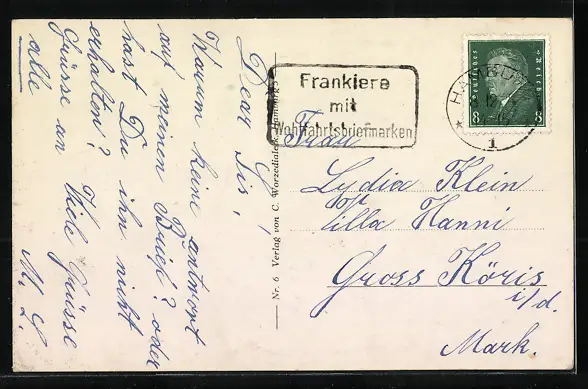 Dear Sis,
Warum keine antwort
auf meinen Brief? oder
hast Du ihn nicht
erhalten? Viele Grüsse
Grüsse an M. L.
alle
Nr. 6 Verlag von C. Worzedialeck, Hamburg
Frankiere
mit
Wohlfahrtsbriefmarken
Deutsches Reich
8 8
HAMBURG
1
Frau
Lydia Klein
Villa Hanni
Gross Köris
i/d.
Mark.